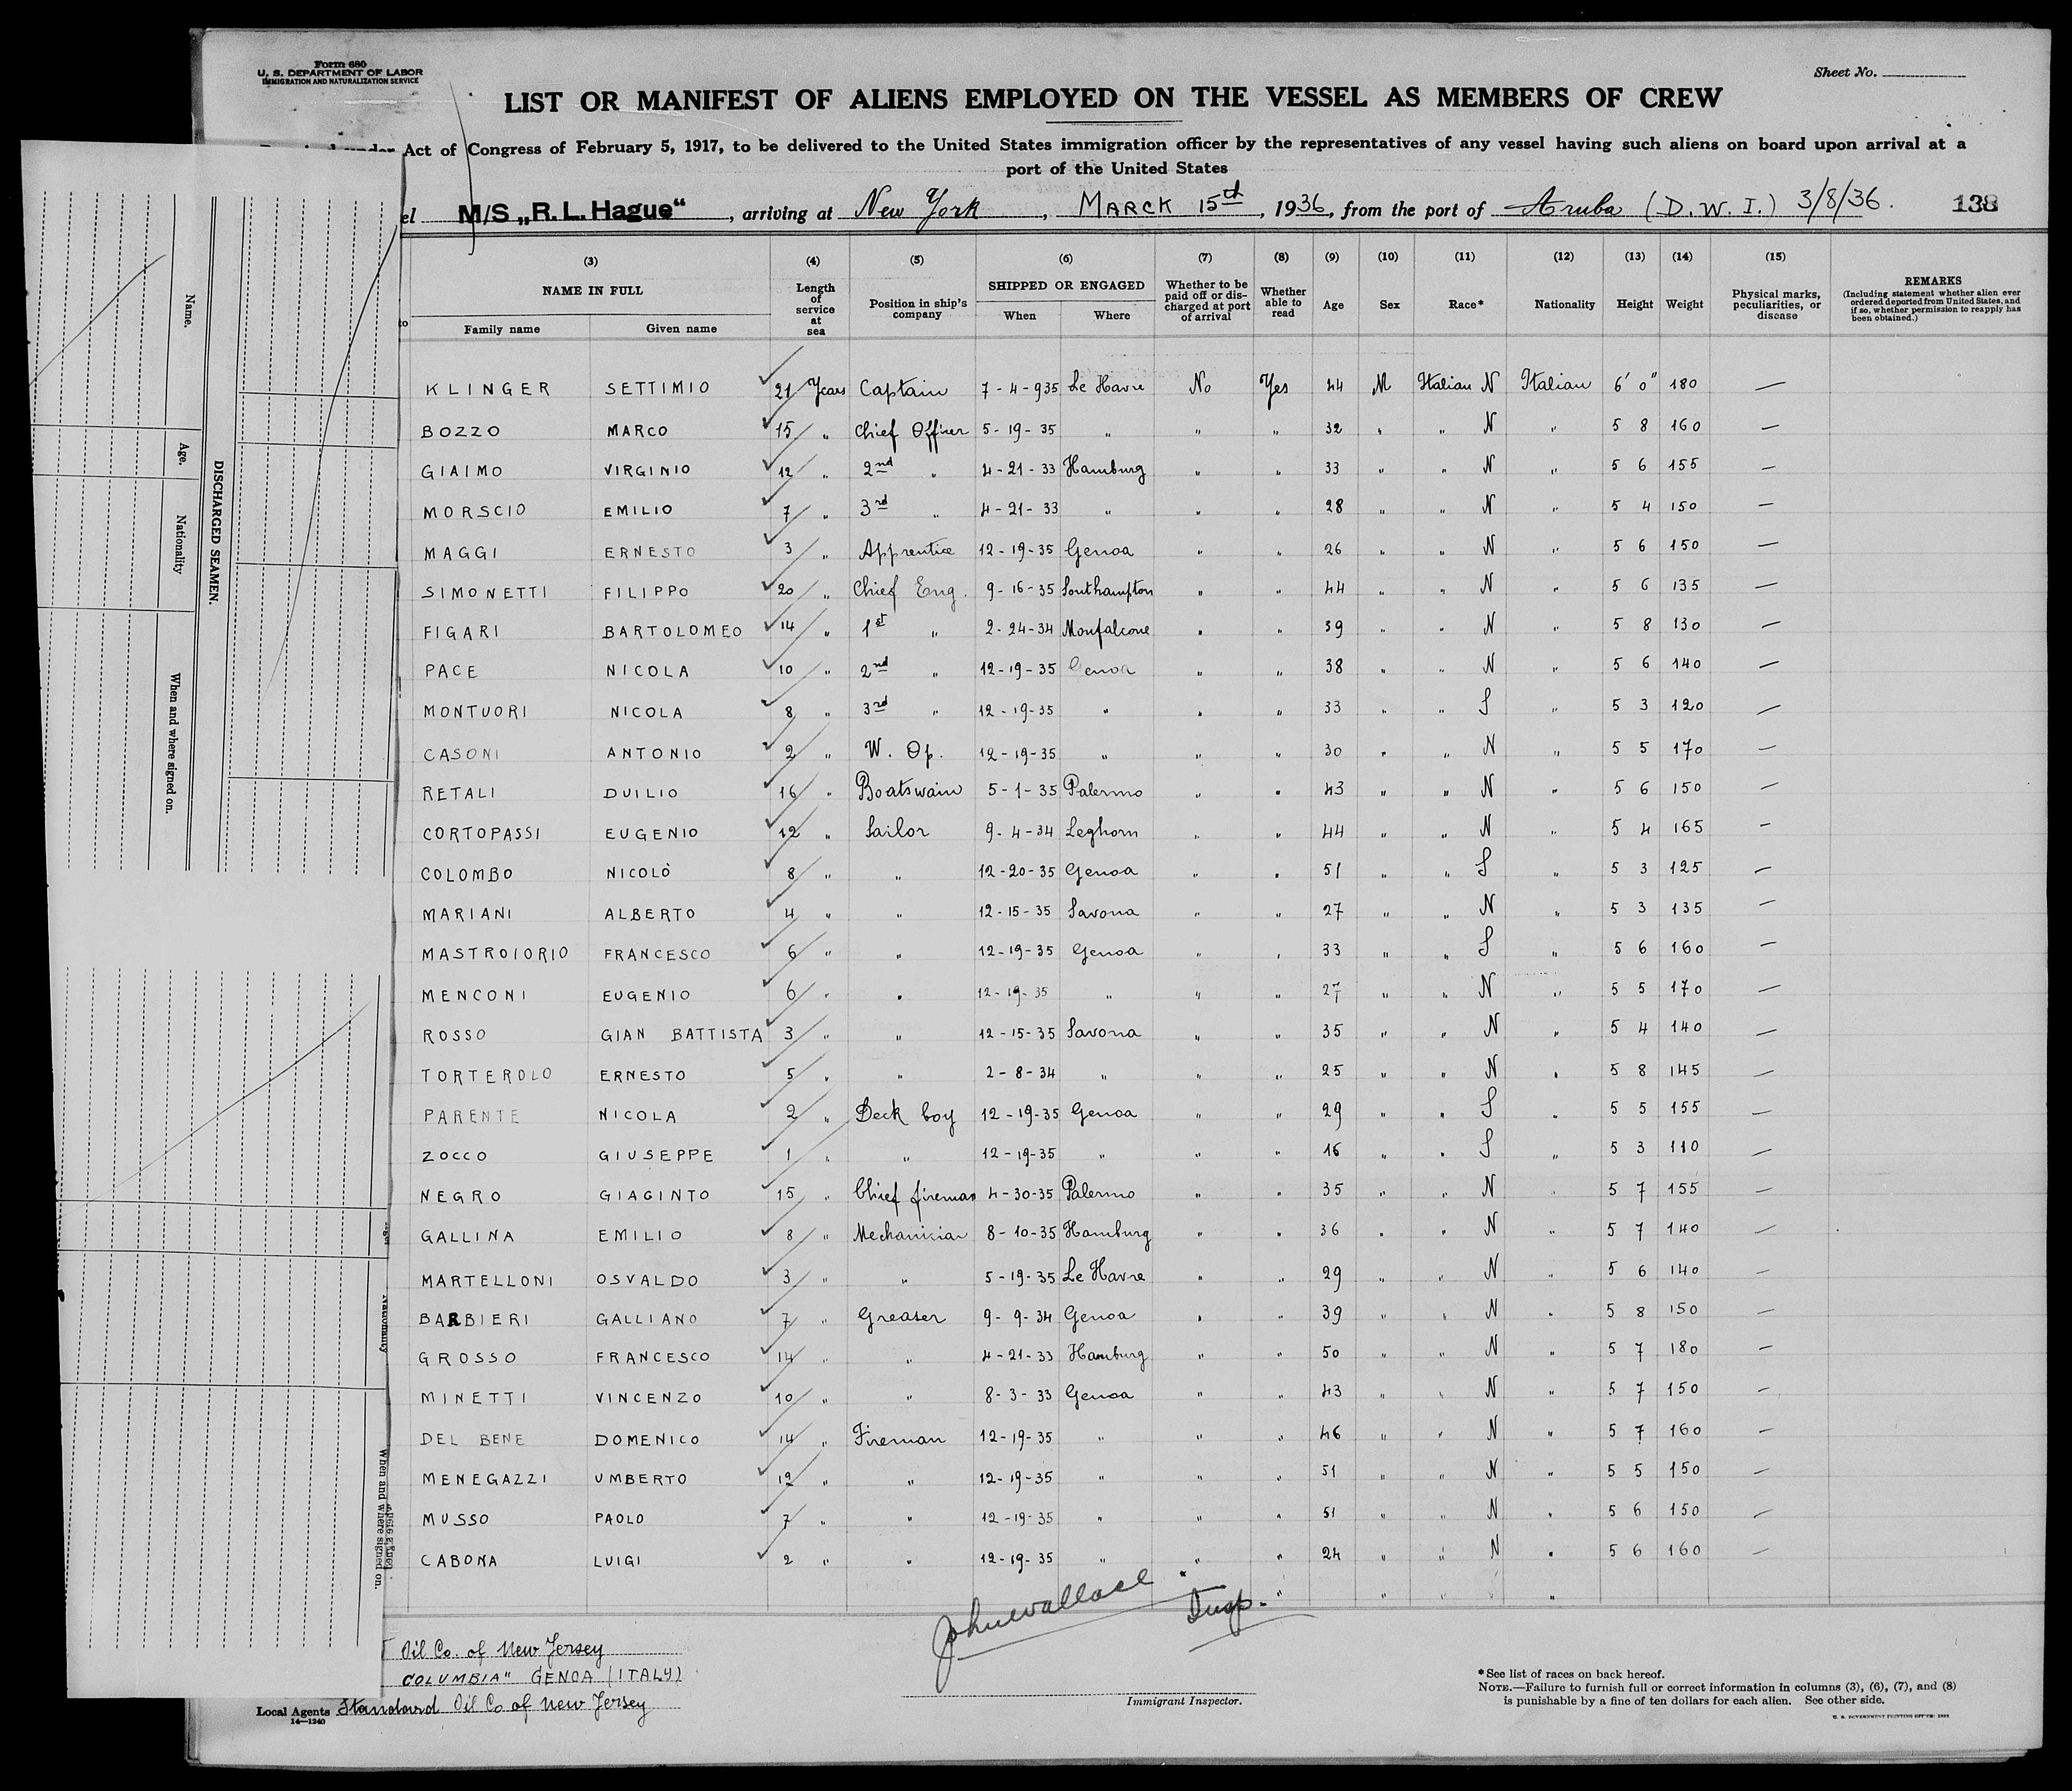 Form 680
U. S. DEPARTMENT OF LABOR
IMMIGRATION AND NATURALIZATION SERVICE
Sheet No.
LIST OR MANIFEST OF ALIENS EMPLOYED ON THE VESSEL AS MEMBERS OF CREW
under Act of Congress of February 5, 1917, to be delivered to the United States immigration officer by the representatives of any vessel having such aliens on board upon arrival at a
port of the United States
el M/S „R. L. Hague“ , arriving at New York , MARCK 15th , 1936, from the port of Aruba (D. W. I.) 3/8/36. 138
(3) (4) (5) (6) (7) (8) (9) (10) (11) (12) (13) (14) (15)
NAME IN FULL Length of service at sea Position in ship's company SHIPPED OR ENGAGED Whether to be paid off or discharged at port of arrival Whether able to read Age Sex Race* Nationality Height Weight Physical marks, peculiarities, or disease REMARKS
(Including statement whether alien ever ordered deported from United States, and if so, whether permission to reapply has been obtained.)
to Family name Given name When Where
KLINGER SETTIMIO 21 Years Captain 7-4-935 Le Havre No Yes 44 M Italian N Italian 6' 0" 180 —
BOZZO MARCO 15 " Chief Officer 5-19-35 " " " 32 " " N " 5 8 160 —
GIAIMO VIRGINIO 12 " 2nd " 4-21-33 Hamburg " " 33 " " N " 5 6 155 —
MORSCIO EMILIO 7 " 3rd " 4-21-33 " " " 28 " " N " 5 4 150 —
MAGGI ERNESTO 3 " Apprentice 12-19-35 Genoa " " 26 " " N " 5 6 150 —
SIMONETTI FILIPPO 20 " Chief Eng. 9-16-35 Southampton " " 44 " " N " 5 6 135 —
FIGARI BARTOLOMEO 14 " 1st " 2-24-34 Monfalcone " " 39 " " N " 5 8 130 —
PACE NICOLA 10 " 2nd " 12-19-35 Genoa " " 38 " " N " 5 6 140 —
MONTUORI NICOLA 8 " 3rd " 12-19-35 " " " 33 " " S " 5 3 120 —
CASONI ANTONIO 2 " W. Op. 12-19-35 " " " 30 " " N " 5 5 170 —
RETALI DUILIO 16 " Boatswain 5-1-35 Palermo " " 43 " " N " 5 6 150 —
CORTOPASSI EUGENIO 12 " Sailor 9-4-34 Leghorn " " 44 " " N " 5 4 165 —
COLOMBO NICOLÒ 8 " " 12-20-35 Genoa " " 51 " " S " 5 3 125 —
MARIANI ALBERTO 4 " " 12-15-35 Savona " " 27 " " N " 5 3 135 —
MASTROIORIO FRANCESCO 6 " " 12-19-35 Genoa " " 33 " " S " 5 6 160 —
MENCONI EUGENIO 6 " " 12-19-35 " " " 27 " " N " 5 5 170 —
ROSSO GIAN BATTISTA 3 " " 12-15-35 Savona " " 35 " " N " 5 4 140 —
TORTEROLO ERNESTO 5 " " 2-8-34 " " " 25 " " N " 5 8 145 —
PARENTE NICOLA 2 " Deck boy 12-19-35 Genoa " " 29 " " S " 5 5 155 —
ZOCCO GIUSEPPE 1 " " 12-19-35 " " " 16 " " S " 5 3 110 —
NEGRO GIACINTO 15 " Chief fireman 4-30-35 Palermo " " 35 " " N " 5 7 155 —
GALLINA EMILIO 8 " Mechanician 8-10-35 Hamburg " " 36 " " N " 5 7 140 —
MARTELLONI OSVALDO 3 " " 5-19-35 Le Havre " " 29 " " N " 5 6 140 —
BARBIERI GALLIANO 7 " Greaser 9-9-34 Genoa " " 39 " " N " 5 8 150 —
GROSSO FRANCESCO 14 " " 4-21-33 Hamburg " " 50 " " N " 5 7 180 —
MINETTI VINCENZO 10 " " 8-3-33 Genoa " " 43 " " N " 5 7 150 —
DEL BENE DOMENICO 14 " Fireman 12-19-35 " " " 46 " " N " 5 7 160 —
MENEGAZZI UMBERTO 12 " " 12-19-35 " " " 51 " " N " 5 5 150 —
MUSSO PAOLO 7 " " 12-19-35 " " " 51 " " N " 5 6 150 —
CABONA LUIGI 2 " " 12-19-35 " " " 24 " " N " 5 6 160 —
John Wallace Insp.
Immigrant Inspector.
Oil Co. of New Jersey
COLUMBIA" GENOA (ITALY)
Local Agents Standard Oil Co of New Jersey
14—1240
*See list of races on back hereof.
NOTE.—Failure to furnish full or correct information in columns (3), (6), (7), and (8)
is punishable by a fine of ten dollars for each alien. See other side.
DISCHARGED SEAMEN.
Name.
Age.
Nationality
When and where signed on.
Nationality
When and where signed on.